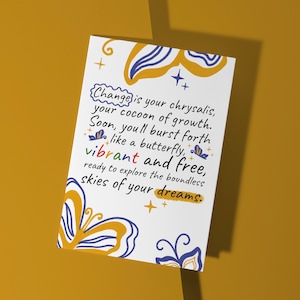 Change is your chrysalis,
your cocoon of growth.
Soon, you'll burst forth
like a butterfly,
vibrant and free,
ready to explore the boundless
skies of your dreams.